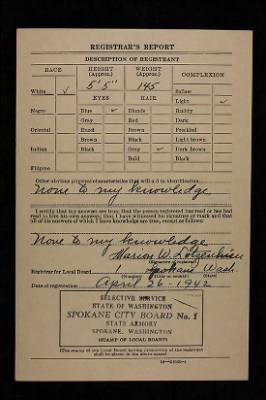 REGISTRAR'S REPORT
DESCRIPTION OF REGISTRANT
RACE HEIGHT (Approx.) WEIGHT (Approx.) COMPLEXION
5' 5" 145
White ✓ Sallow
EYES HAIR Light ✓
Negro Blue ✓ Blonde Ruddy
Gray Red Dark
Oriental Hazel Brown Freckled
Brown Black Light brown
Indian Black Gray ✓ Dark brown
Bald Black
Filipino
Other obvious physical characteristics that will aid in identification
None to my knowledge
I certify that my answers are true; that the person registered has read or has had
read to him his own answers; that I have witnessed his signature or mark and that
all of his answers of which I have knowledge are true, except as follows:
None to my knowledge
Marion W.
(Signature of registrar)
Registrar for Local Board Spokane Wash.
(Number) (City or county) (State)
Date of registration April 26 - 1942
SELECTIVE SERVICE
STATE OF WASHINGTON
SPOKANE CITY BOARD No. 1
STATE ARMORY
SPOKANE, WASHINGTON
(STAMP OF LOCAL BOARD)
(The stamp of the Local Board having jurisdiction of the registrant
shall be placed in the above space.)